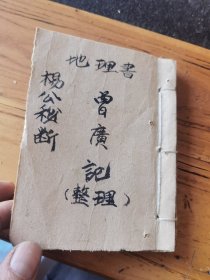 地理書
曾廣記
(整理)
楊公秘断